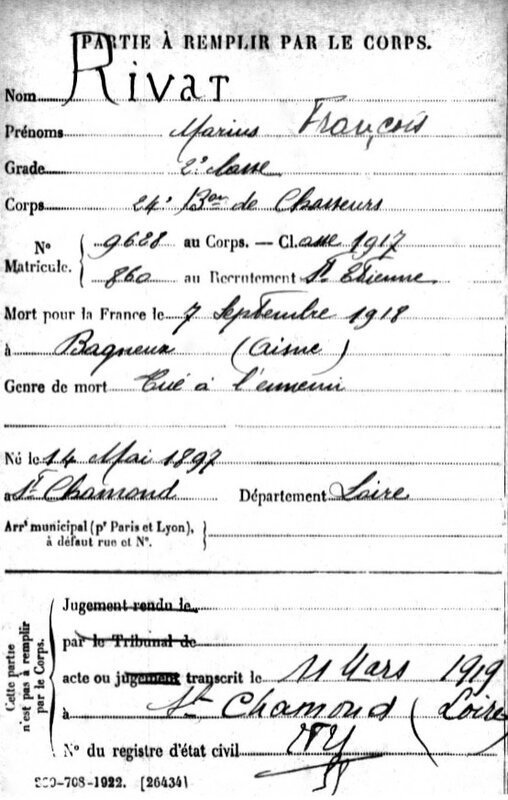 PARTIE À REMPLIR PAR LE CORPS.
Nom Rivat
Prénoms Marius François
Grade 2e classe
Corps 24e Bon de Chasseurs
No Matricule. 9628 au Corps. — Classe 1917
860 au Recrutement St Etienne
Mort pour la France le 7 Septembre 1918
à Bagneux (Aisne)
Genre de mort Tué à l'ennemi
Né le 14 Mai 1897
à St Chamond Département Loire
Arrt municipal (pr Paris et Lyon),
à défaut rue et No.
Cette partie n'est pas à remplir par le Corps.
Jugement rendu le
par le Tribunal de
acte ou jugement transcrit le 11 Mars 1919
à St Chamond (Loire)
No du registre d'état civil